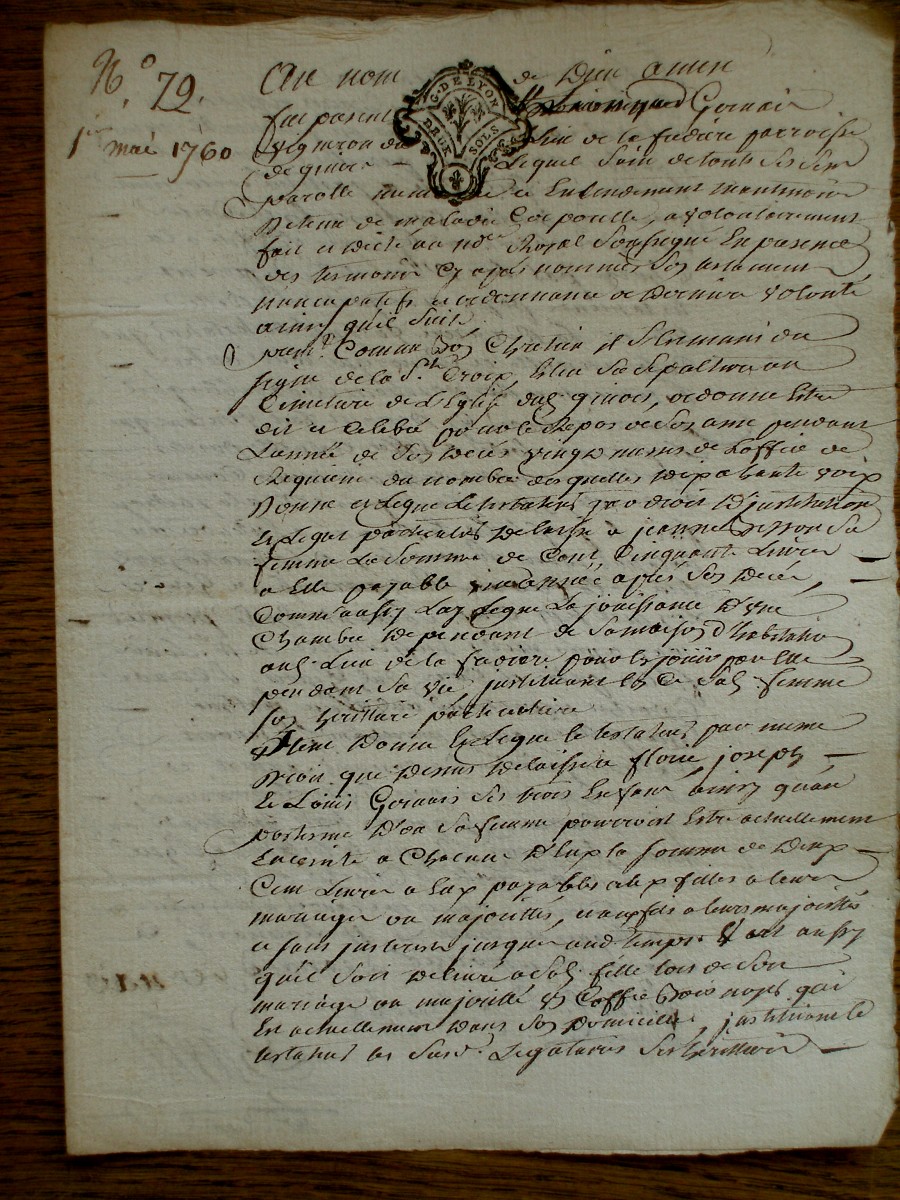 N.º 79.
1er mai 1760
G. DE LYON
DEUX SOLS
Au nom de Dieu amen
fut present Gervais
vigneron du lieu de la fadiere parroisse
de lequel sain de touts ses sens
parolle memoire et Entendement neantmoins
detenu de maladie Corporelle, a volontairement
fait et dicté au nore Royal soussigné En presence
des temoins Cy apres nommés son testament
nuncupatif et ordonnance de derniere volonté
ainsy qu'il suit
premt Comme bon Chretien il s'est muni du
signe de la Ste Croix, Eslu sa sepulture au
Cimetiere de l'Eglise dud. , ordonne Estre
dit et Celebré pour le Repos de son ame pendant
L'année de son deces vingt messes de l'office de
Requiem du nombre desquelles deux a haute voix
Donne et Legue Le testateur par droit D'institution
et Legat particulier Delaisse a jeanne sa
femme La somme de Cent Cinquante Livres
a Elle payable une année après son decés,
Comm'aussy Luy Legue La jouissance D'une
Chambre dependante de sa maison d'habitation
aud. Lieu de la fadiere pour En jouir par Elle
pendant sa vie, instituant En Ce sad. femme
son herittiere particuliere
Item Donne et Legue le testateur par meme
droit que dessus Delaisse a joseph
et Louis Gervais ses trois Enfans ainsy qu'au
posthume D'on sa femme pourroit Estre actuellement
Enceinte a Chacun D'Eux la somme de Deux
Cent Livres a Eux payables aux filles a leurs
mariages ou majorités, et aux fils a leurs majorités
et sans interest jusques aud. temps aussy
qu'il soit delivré a sad. fille lors de son
mariage ou majorité Coffre bois noyer qui
Est actuellement dans son Domicile, instituant le
testateur les susd. Legataires ses herittiers